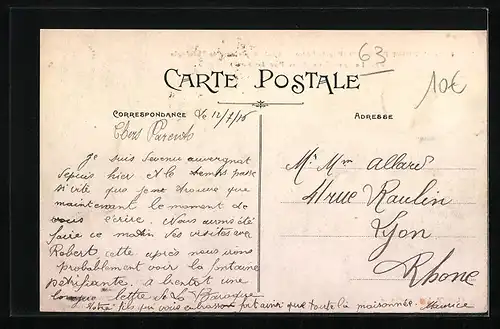 63
10€
CARTE POSTALE
CORRESPONDANCE
ADRESSE
le 12/9/15
Chers Parents
Je suis devenu auvergnat
depuis hier le temps passe
si vite que je ne trouve que
maintenant le moment de
vous écrire. Nous avons été
faire ce matin des visites avec
Robert, cette après nous irons
probablement voir la fontaine
pétrifiante. a bientot une
longue lettre
Votre fils qui vous embrasse fort ainsi que toute la maisonnée. Maurice
Mr Mme Allard
41 rue Raulin
Lyon
Rhone